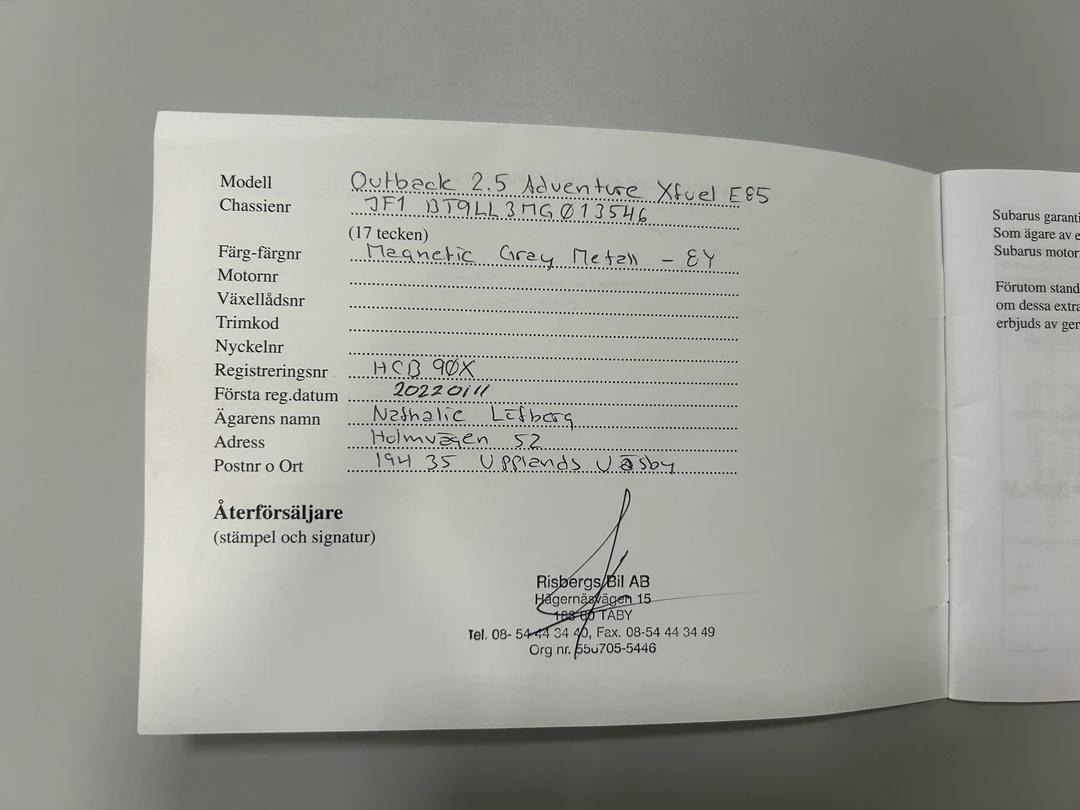 Modell Outback 2.5 Adventure Xfuel E85
Chassienr JF1 BT9LL3MG013546
(17 tecken)
Färg-färgnr Magnetic Gray Metall - 8Y
Motornr
Växellådsnr
Trimkod
Nyckelnr
Registreringsnr HCB 90X
Första reg.datum 20220111
Ägarens namn Nathalie
Adress Holmvägen 52
Postnr o Ort 194 35 Upplands Väsby
Återförsäljare
(stämpel och signatur)
Risbergs Bil AB
Hägernäsvägen 15
183 60 TÄBY
Tel. 08- 54 44 34 40, Fax. 08-54 44 34 49
Org nr. 556705-5446
Subarus garanti
Som ägare av e
Subarus motor
Förutom stand
om dessa extra
erbjuds av ger